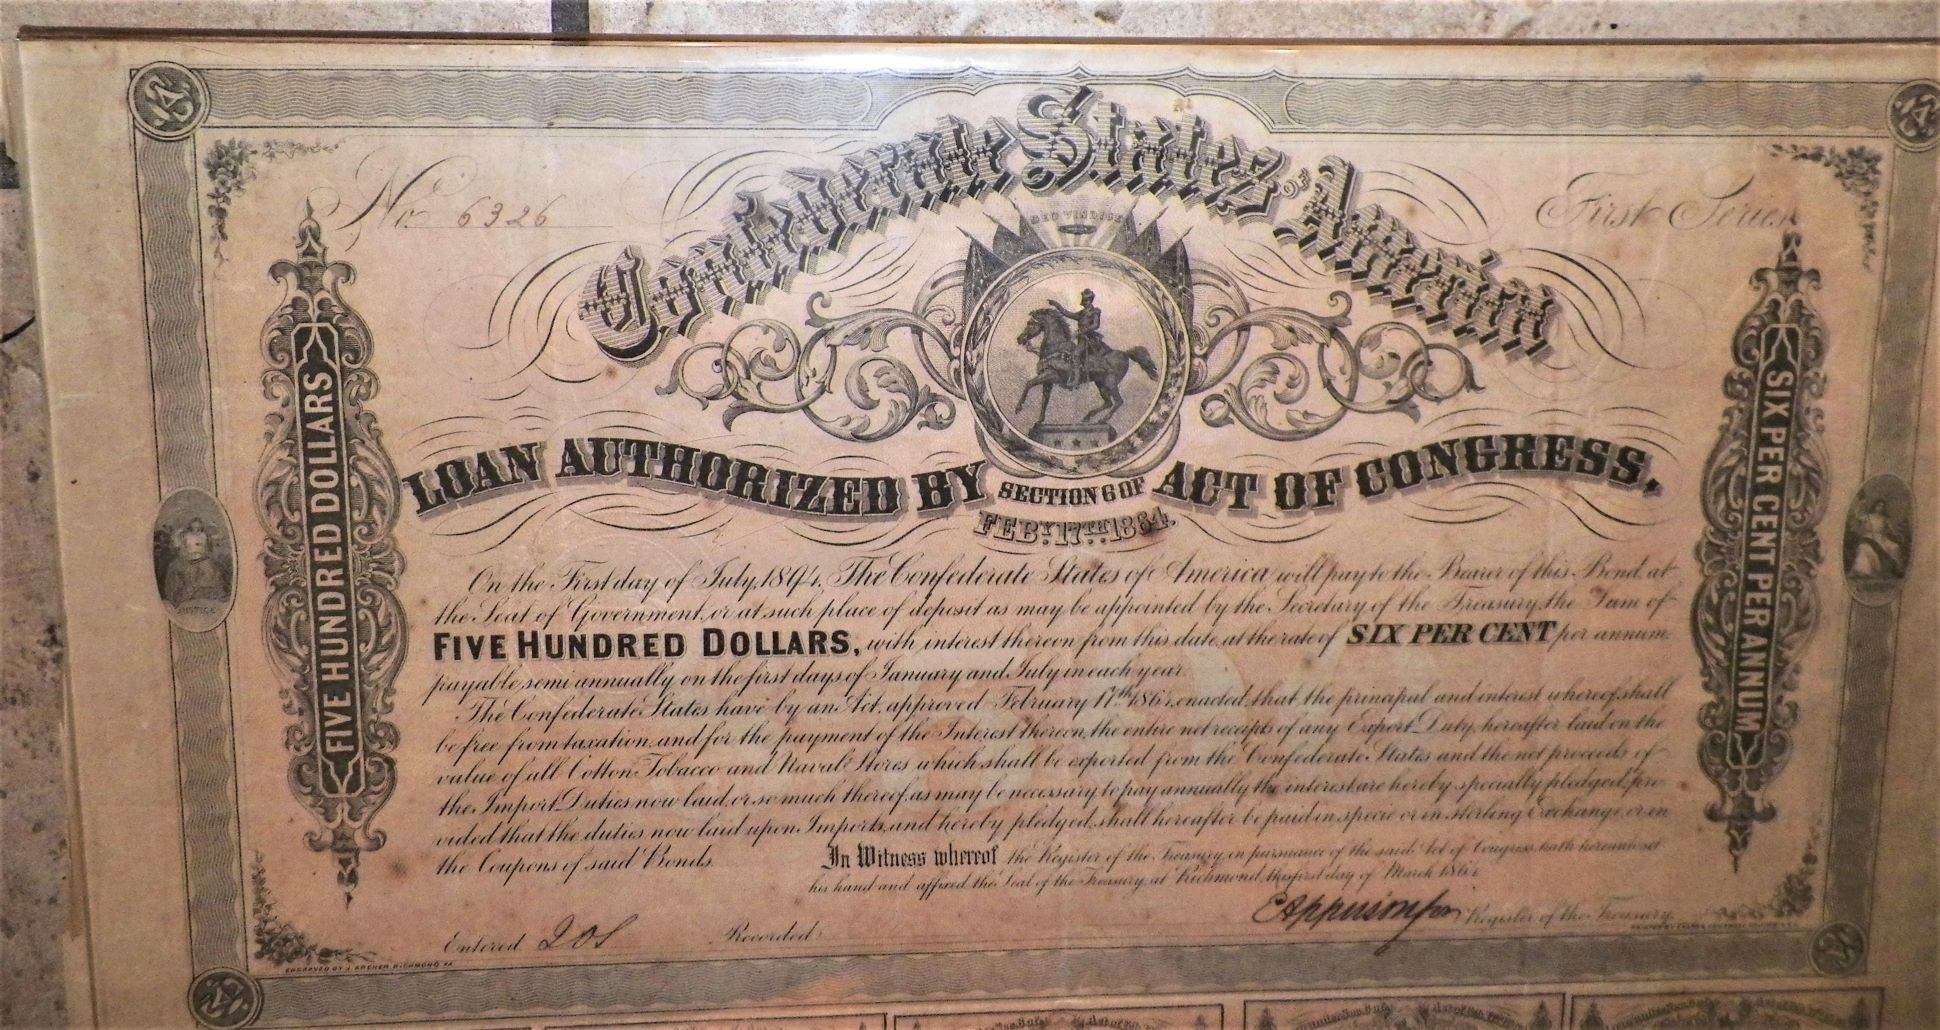 No. 6326
First Series
Confederate States of America
DEO VINDICE
LOAN AUTHORIZED BY SECTION 6 OF ACT OF CONGRESS,
FEBY. 17TH. 1864.
FIVE HUNDRED DOLLARS
SIX PER CENT PER ANNUM
JUSTICE
On the First day of July, 1894, The Confederate States of America will pay to the Bearer of this Bond, at
the Seat of Government, or at such place of deposit as may be appointed by the Secretary of the Treasury, the Sum of
FIVE HUNDRED DOLLARS, with interest thereon from this date, at the rate of SIX PER CENT per annum
payable semi annually on the first days of January and July in each year.
The Confederate States have by an Act, approved February 17th 1864, enacted, that the principal and interest whereof shall
be free from taxation, and for the payment of the Interest thereon, the entire net receipts of any Export Duty, hereafter laid on the
value of all Cotton Tobacco and Naval Stores which shall be exported from the Confederate States and the net proceeds of
the Import Duties now laid, or so much thereof, as may be necessary to pay annually the interest are hereby specially pledged, pro-
vided that the duties now laid upon Imports, and hereby pledged, shall hereafter be paid in specie or in sterling Exchange, or in
the Coupons of said Bonds.
In Witness whereof the Register of the Treasury, in pursuance of the said Act of Congress, hath hereunto set
his hand and affixed the Seal of the Treasury, at Richmond, this first day of March 1864
EApperson for Register of the Treasury
Entered 208
Recorded
ENGRAVED BY J. ARCHER RICHMOND, VA.